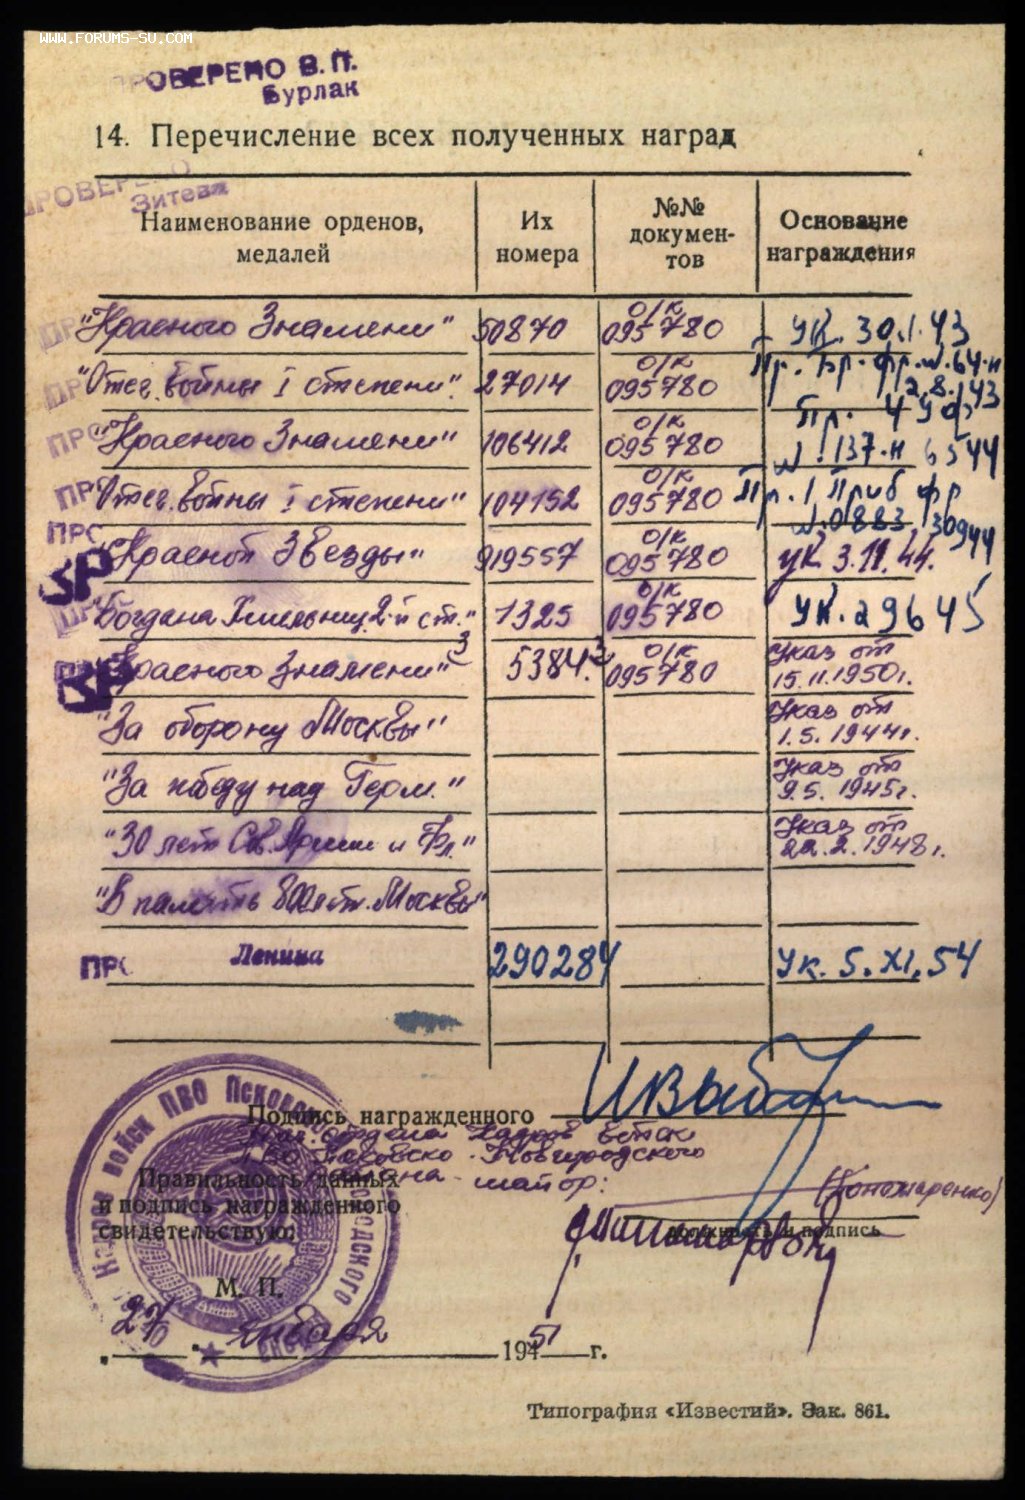 WWW.FORUMS-SU.COM
ПРОВЕРЕНО В. П.
Бурлак
14. Перечисление всех полученных наград
ПРОВЕРЕНО
Зитева
Наименование орденов, медалей
Их номера
№№ документов
Основание награждения
"Красного Знамени" 50870 о/к 095780 Ук. 30.1.43
"Отеч. войны I степени". 27014 о/к 095780 Пр. Бр. фр. №. 64-н 2.8.43
"Красного Знамени" 106412 о/к 095780 Пр. 4 Уф №. 137-н 6544
"Отеч. войны I степени" 104152 о/к 095780 Пр. 1 Приб фр №.0883 30944
"Красной Звезды" 919557 о/к 095780 Ук 3.11.44.
"Богдана Хмельниц. 2-й ст." 1325 о/к 095780 Ук. 29645
"Красного Знамени" 3 5384. 3 о/к 095780 Указ от 15.11.1950г.
"За оборону Москвы" Указ от 1.5.1944г.
"За победу над Герм." Указ от 9.5.1945г.
"30 лет Сов. Армии и Фл." Указ от 22.2.1948г.
"В память 800 лет. Москвы"
ПРО Ленина 290284 Ук. 5. XI. 54
ВР
ВР
Подпись награжденного
Нач. отдела кадров войск
ПВО Псковско-Новгородского
района - майор:
(Пономаренко)
Правильность данных
и подпись награжденного
свидетельствую:
должность и подпись
М. П.
27 января 1951 г.
войск ПВО Псковско
Типография «Известий». Зак. 861.